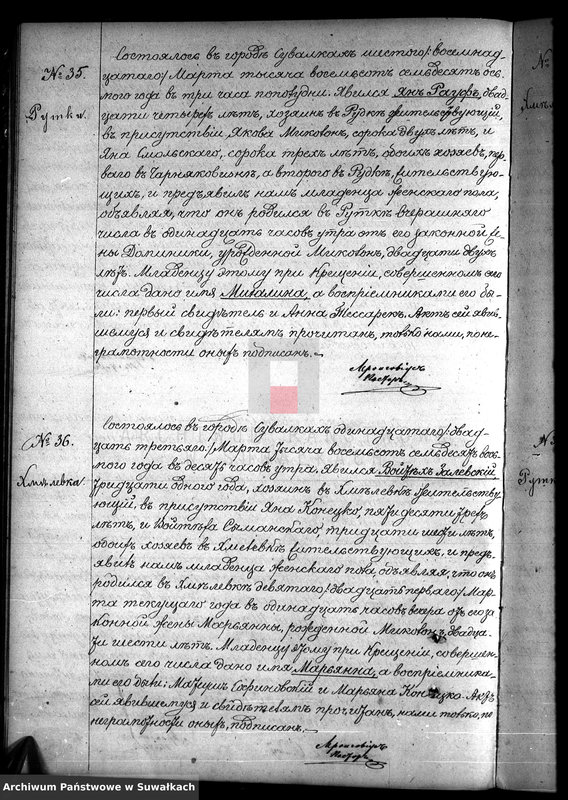 № 35.
Рутка.
Состоялось въ городѣ Сувалкахъ шестого /: восемнад-
цатаго / Марта тысяча восемьсотъ семьдесятъ ось-
мого года въ три часа пополудни. Явился Янъ Рауфъ, двад-
цати четырехъ лѣтъ, хозяинъ въ Рудкѣ жительствующій,
въ присутствіи Якова Миковонъ, сорока двухъ лѣтъ, и
Яна Смольскаго, сорока трехъ лѣтъ, обоихъ хозяевъ, пер-
ваго въ Чарнаковизнѣ, а второго въ Рудкѣ, жительствую-
щихъ, и предъявилъ намъ младенца женскаго пола,
объявляя, что онъ родился въ Руткѣ вчерашняго
числа въ одинадцать часовъ утра отъ его законной Же-
ны Доминики, урожденной Миковонъ, двадцати двухъ
лѣтъ. Младенцу этому при Крещеніи, совершенномъ сего
числа дано имя Михалина, а воспріемниками его бы-
ли: первый свидѣтель и Анна Мессарекъ. Актъ сей явив-
шемуся и свидѣтелямъ прочитанъ, только нами, по не-
грамотности оныхъ подписанъ.
№ 36.
Хмѣлевка.
Состоялось въ городѣ Сувалкахъ одинадцатаго /: двад-
цать третьяго / Марта тысяча восемьсотъ семьдесятъ вось-
мого года въ десять часовъ утра. Явился Войтѣхъ Залевскій
тридцати одного года, хозяинъ въ Хмѣлевкѣ жительству-
ющій, въ присутствіи Яна Конецко, пятидесяти трехъ
лѣтъ, и Войтѣха тридцати шести лѣтъ,
обоихъ хозяевъ въ Хмѣлевкѣ жительствующихъ, и предъ-
явилъ намъ младенца женскаго пола, объявляя, что онъ
родился въ Хмѣлевкѣ девятаго /: двадцать перваго / Мар-
та текущаго года въ одинадцать часовъ вечера отъ его за-
конной жены Марьянны, рожденной Миковонъ, двадца-
ти шести лѣтъ. Младенцу этому при Крещеніи, совершен-
номъ сего числа дано имя Марьянна, а воспріемника-
ми его были: Матеушъ Скриновскій и Марьяна Конецко. Актъ
сей явившемуся и свидѣтелямъ прочитанъ, нами только, по
неграмотности оныхъ, подписанъ.
Archiwum Państwowe w Suwałkach